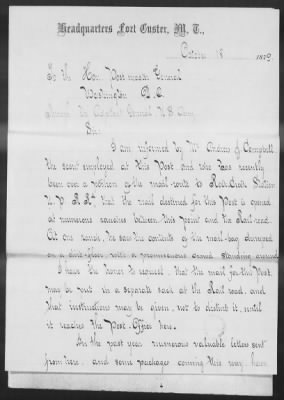 Headquarters Fort Custer, M. T.,
October 18 1879
To the Hon. Post master General
Washington D. C.
Through the Adjutant General U S Army
Sir:
I am informed by Mr Andrew J. Campbell
the scout employed at this Post and who has recently
been over a portion of the mail route to Rock Creek Station
U. P. R. R. that the mail destined for this Post is opened
at numerous ranches between this point and the Rail road.
At one ranch he saw the contents of the mail-bag dumped
on a dirt-floor with a promiscuous crowd standing around
I have the honor to request that the mail for this Post
may be put in a separate sack at the Rail road, and
that instructions may be given, not to disturb it, until
it reaches the Post-Office here.
In the past year numerous valuable letters sent
from here, and some packages coming this way, have